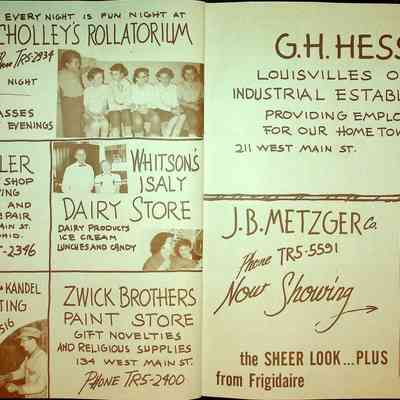 EVERY NIGHT IS FUN NIGHT AT
CHOLLEY'S ROLLATORIUM
Phone TR5-2934
NIGHT
ASSES
EVENINGS
LER
SHOP
ING
AND
PAIR
AIN ST.
HIO.
-2346
WHITSON'S
ISALY
DAIRY STORE
DAIRY PRODUCTS
ICE CREAM
LUNCHES AND CANDY
KANDEL
TING
516
ZWICK BROTHERS
PAINT STORE
GIFT NOVELTIES
AND RELIGIOUS SUPPLIES
134 WEST MAIN ST.
PHONE TR5-2400
G.H. HESS
LOUISVILLES O
INDUSTRIAL ESTABL
PROVIDING EMPLO
FOR OUR HOME TOW
211 WEST MAIN ST.
J.B. METZGER Co.
Phone TR5-5591
Now Showing
the SHEER LOOK...PLUS
from Frigidaire